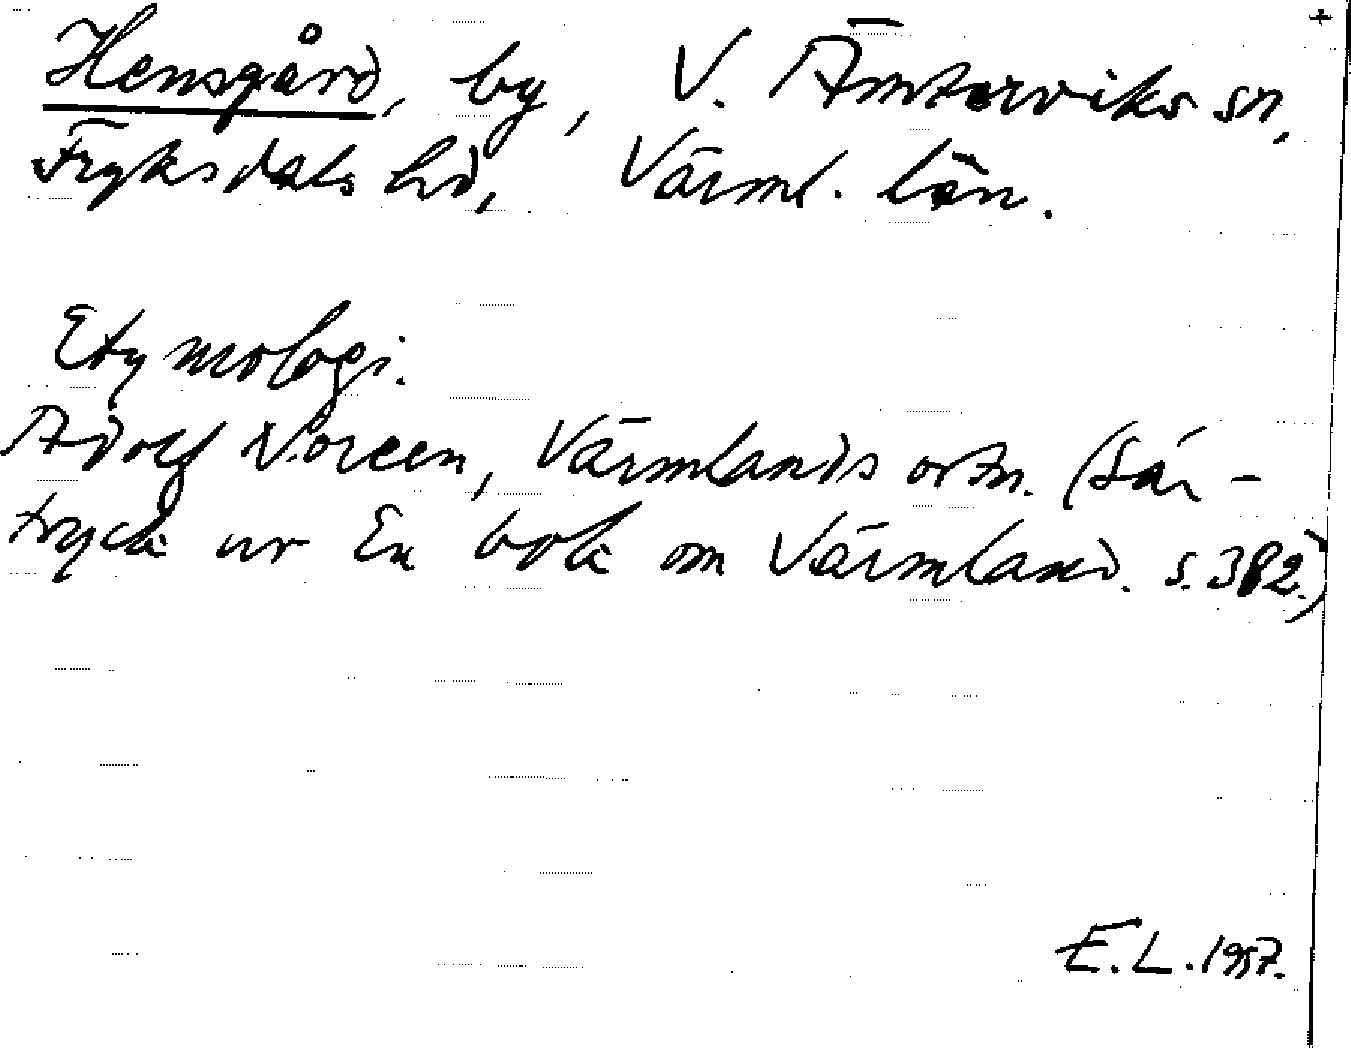 +
Hensgård, by, V. Ämterviks sn,
Fryksdals hd, Värml. län.
Etymologi.
Adolf Noreen, Värmlands ortn. (Sär-
tryck ur En bok om Värmland. s. 382.)
E. L. 1957.